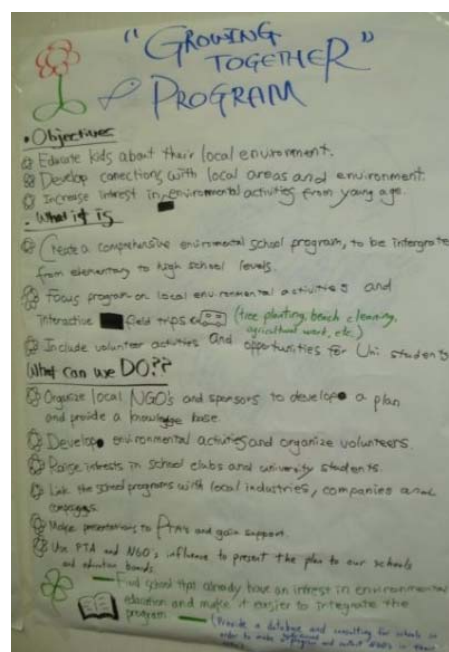 "GROWING
TOGETHER"
PROGRAM
• Objectives
Educate kids about their local environment.
Develop conections with local areas and environment.
Increase interest in environmental activities from young age.
• What it is
Create a comprehensive enviromental school program, to be intergrate
from elementary to high school levels.
Focus program on local environmental activities and
Interactive field trips (tree planting, beach cleaning,
agricultural work, etc.)
Include volunteer activities and opportunities for Uni students
What can we DO??
Organize local NGO's and sponsors to develope a plan
and provide a knowledge base.
Develop environmental activities and organize volunteers.
Raise intrests in school clubs and university students.
Link the school programs with local industries, companies and
Make presentations to PTA's and gain support.
Use PTA and NGO's influence to present the plan to our schools
and education boards.
— Find school that already have an intrest in environmental
education and make it easier to integrate the
program.
— (Provide a database and consulting for schools in
order to make program and contact NGO's